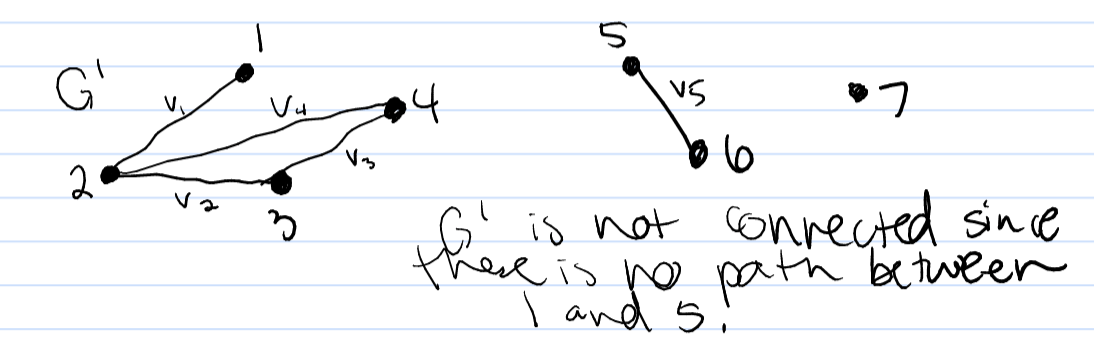 G'
1
v₁
v₄
4
2
v₂
v₃
3
5
v5
6
7
G' is not connected since
there is no path between
1 and 5.